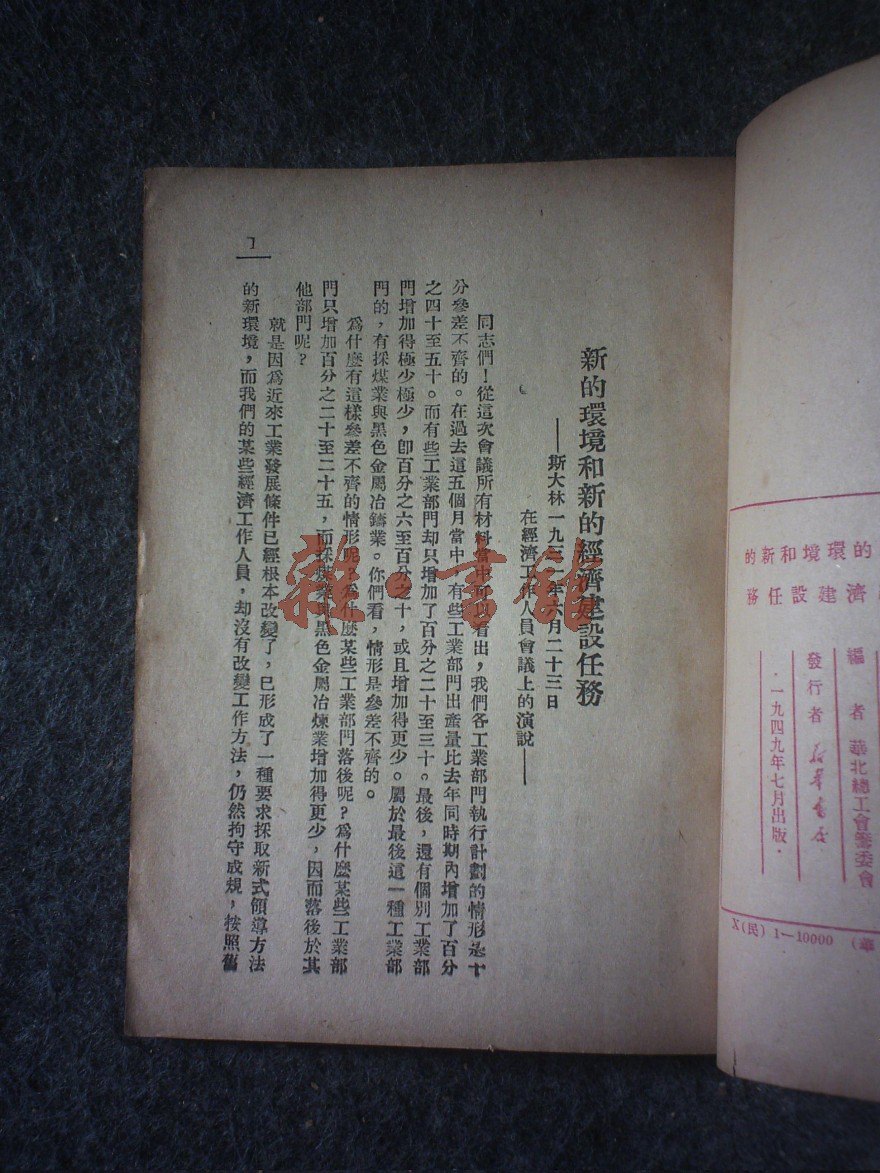 的環境和新的
濟建設任務
編者 華北總工會籌委會
發行者 新華書店
·一九四九年七月出版·
X(民) 1—10000 (華
新的環境和新的經濟建設任務
——斯大林一九三一年六月二十三日
在經濟工作人員會議上的演說——
同志們！從這次會議所有材料當中可以看出，我們各工業部門執行計劃的情形是十
分參差不齊的。在過去這五個月當中，有些工業部門出產量比去年同時期內增加了百分
之四十至五十。而有些工業部門却只增加了百分之二十至三十。最後，還有個別工業部
門增加得極少極少，卽百分之六至百分之十，或且增加得更少。屬於最後這一種工業部
門的，有採煤業與黑色金屬冶鑄業。你們看，情形是參差不齊的。
爲什麽有這樣參差不齊的情形呢？爲什麽某些工業部門落後呢？爲什麽某些工業部
門只增加百分之二十至二十五，而採煤業與黑色金屬冶煉業增加得更少，因而落後於其
他部門呢？
就是因爲近來工業發展條件已經根本改變了，已形成了一種要求採取新式領導方法
的新環境，而我們的某些經濟工作人員，却沒有改變工作方法，仍然拘守成規，按照舊
1
雜·書館